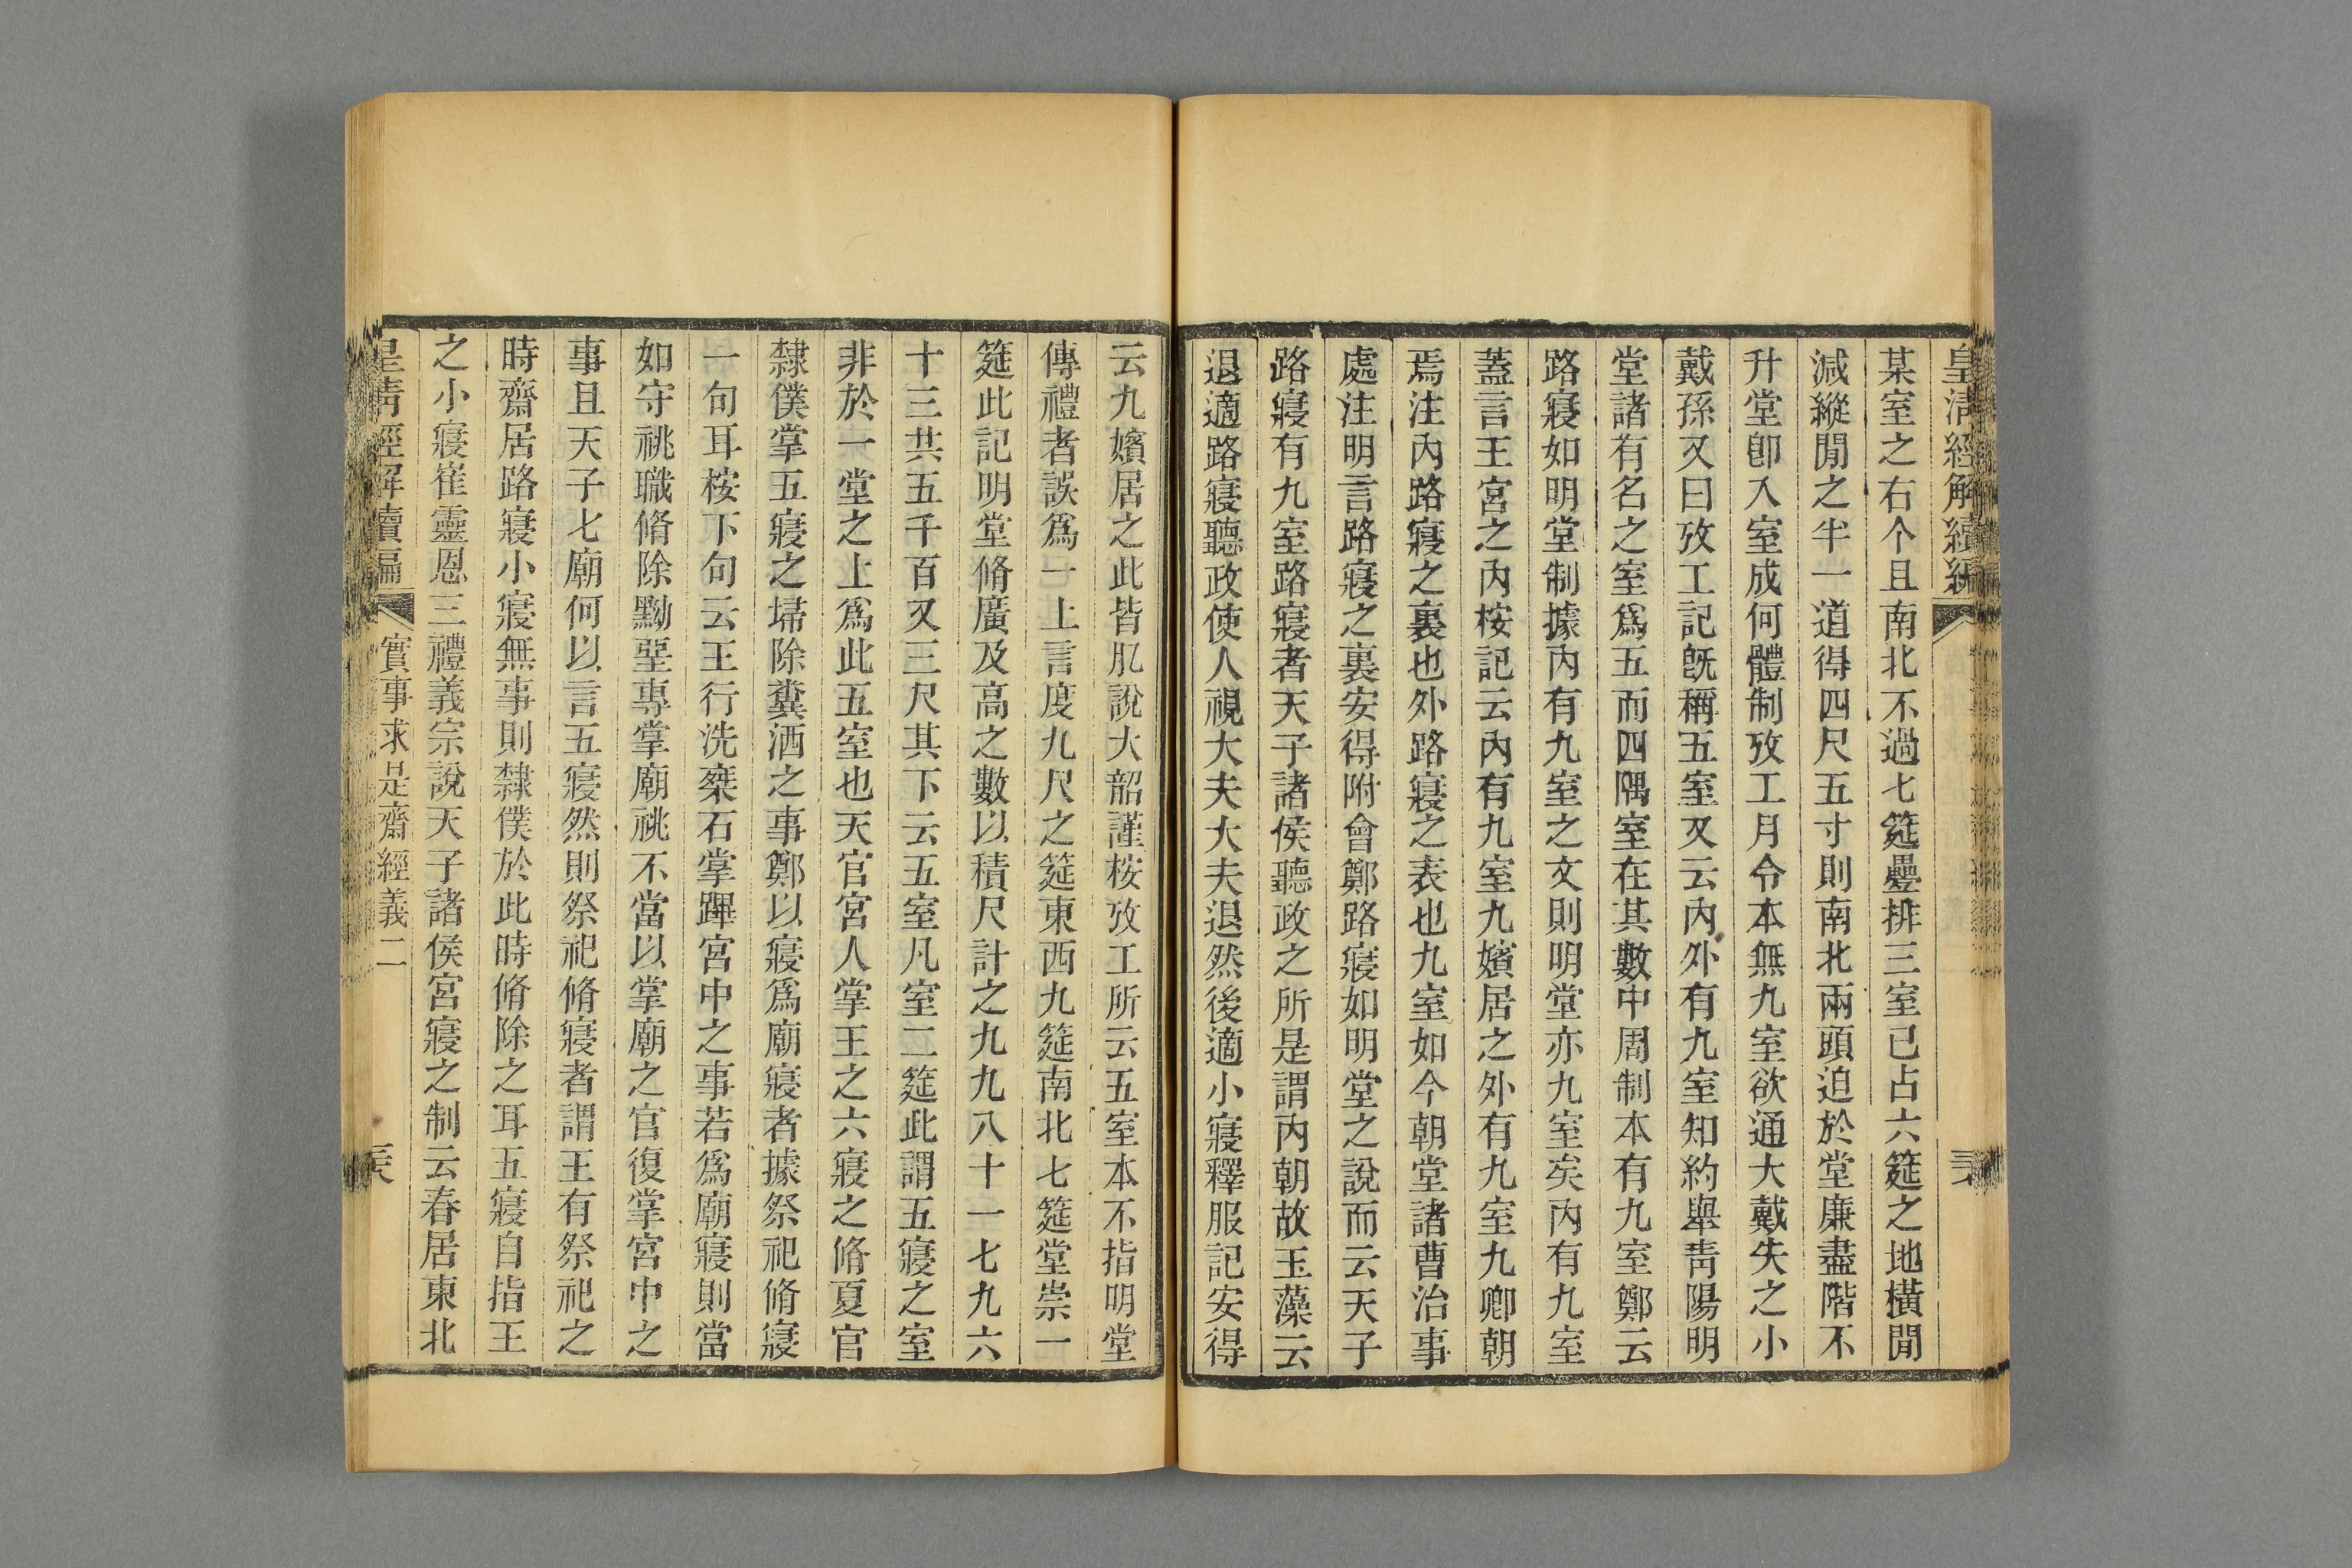 皇清經解續編
某室之右个且南北不過七筵疊排三室已占六筵之地橫閒
減縱閒之半一道得四尺五寸則南北兩頭迫於堂廉盡階不
升堂卽入室成何體制攷工月令本無九室欲通大戴失之小
戴孫又曰攷工記旣稱五室又云內外有九室知約舉靑陽明
堂諸有名之室爲五而四隅室在其數中周制本有九室鄭云
路寢如明堂制據內有九室之文則明堂亦九室矣內有九室
蓋言王宮之內桉記云內有九室九嬪居之外有九室九卿朝
焉注內路寢之裏也外路寢之表也九室如今朝堂諸曹治事
處注明言路寢之裏安得附會鄭路寢如明堂之說而云天子
路寢有九室路寢者天子諸侯聽政之所是謂內朝故玉藻云
退適路寢聽政使人視大夫大夫退然後適小寢釋服記安得
云九嬪居之此皆肊說大韶謹桉攷工所云五室本不指明堂
傳禮者誤爲一上言度九尺之筵東西九筵南北七筵堂崇一
筵此記明堂脩廣及高之數以積尺計之九九八十一七九六
十三共五千百又三尺其下云五室凡室二筵此謂五寢之室
非於一堂之上爲此五室也天官宮人掌王之六寢之脩夏官
隸僕掌五寢之埽除糞洒之事鄭以寢爲廟寢者據祭祀脩寢
一句耳桉下句云王行洗椉石掌蹕宮中之事若爲廟寢則當
如守祧職脩除黝堊專掌廟祧不當以掌廟之官復掌宮中之
事且天子七廟何以言五寢然則祭祀脩寢者謂王有祭祀之
時齋居路寢小寢無事則隸僕於此時脩除之耳五寢自指王
之小寢崔靈恩三禮義宗說天子諸侯宮寢之制云春居東北
皇清經解續編
實事求是齋經義二